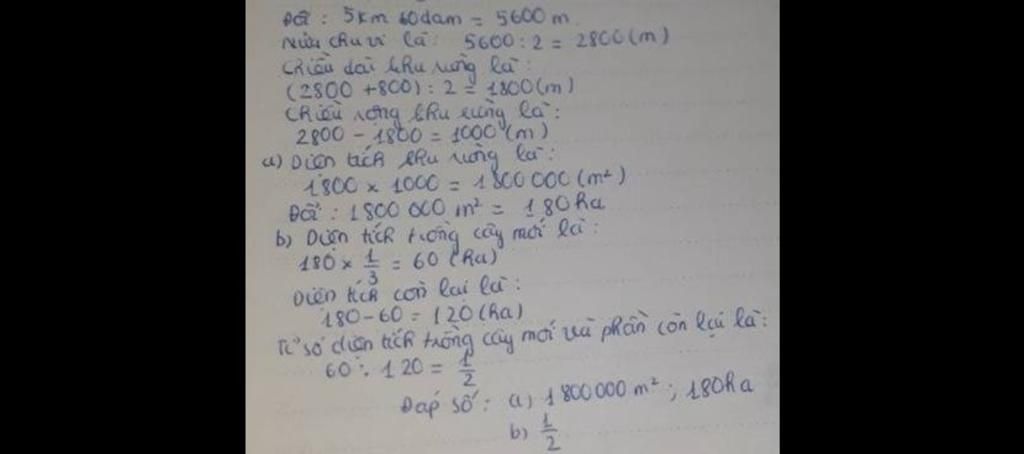 Đổi : 5km 60dam = 5600 m.
Nửa chu vi là: 5600 : 2 = 2800 (m)
Chiều dài khu rừng là:
(2800 +800) : 2 = 1800 (m)
Chiều rộng khu rừng là:
2800 - 1800 = 1000 (m)
a) Diện tích khu rừng là:
1800 × 1000 = 1800 000 (m²)
Đổi : 1800 000 m² = 180 ha
b) Diện tích trồng cây mới là:
180 × 1/3 = 60 (ha)
Diện tích còn lại là:
180 - 60 = 120 (ha)
Tỉ số diện tích trồng cây mới và phần còn lại là:
60 : 120 = 1/2
Đáp số: a) 1800000 m² ; 180ha
b) 1/2